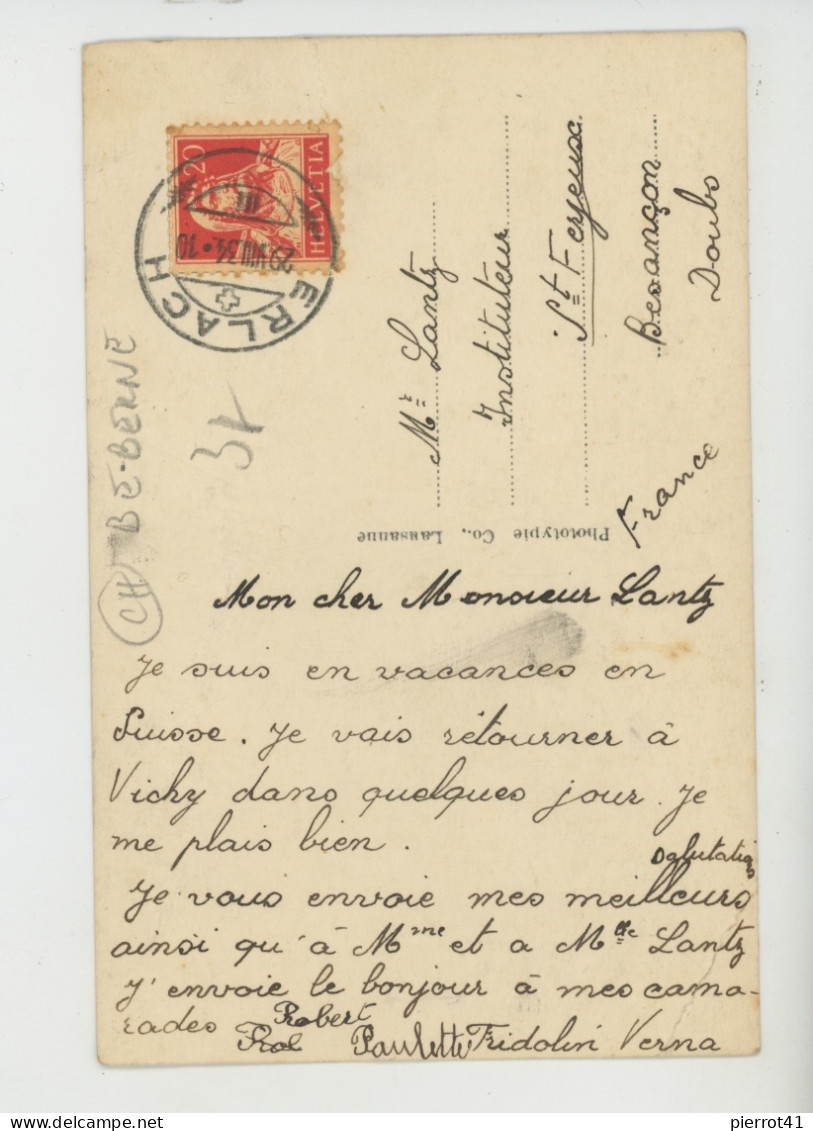 20
HELVETIA
ERLACH
29.VIII.34.10
III
BE-BERNE
CH
Mr Lantz
Instituteur
St Ferjeux
Besançon
Doubs
France
Phototypie Co., Lausanne
Mon cher Monsieur Lantz
Je suis en vacances en
Suisse. Je vais rétourner à
Vichy dans quelques jour. Je
me plais bien.
salutations
Je vous envoie mes meilleurs
ainsi qu'à Mme et a Mlle Lantz
J'envoie le bonjour à mes cama-
rades Robert
Paulette Fridolin Verna
pierrot41